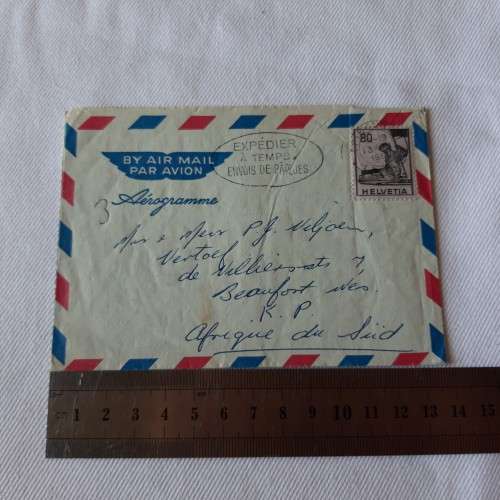 BY AIR MAIL
PAR AVION
EXPÉDIER
À TEMPS
ENVOIS DE PÂQUES
80
HELVETIA
Aérogramme
3
Mnr & Mevr P.J. Viljoen,
de Villiersstr 7,
Beaufort Wes.
K. P.
Afrique du Sud
1 2 3 4 5 6 7 8 9 10 11 12 13 14 15